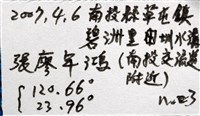 2007,4,6 南投縣草屯鎮
碧洲里田圳水溝
張廖年鴻 (南投交流道
附近)
{ 120.66°
23.96°
n=3